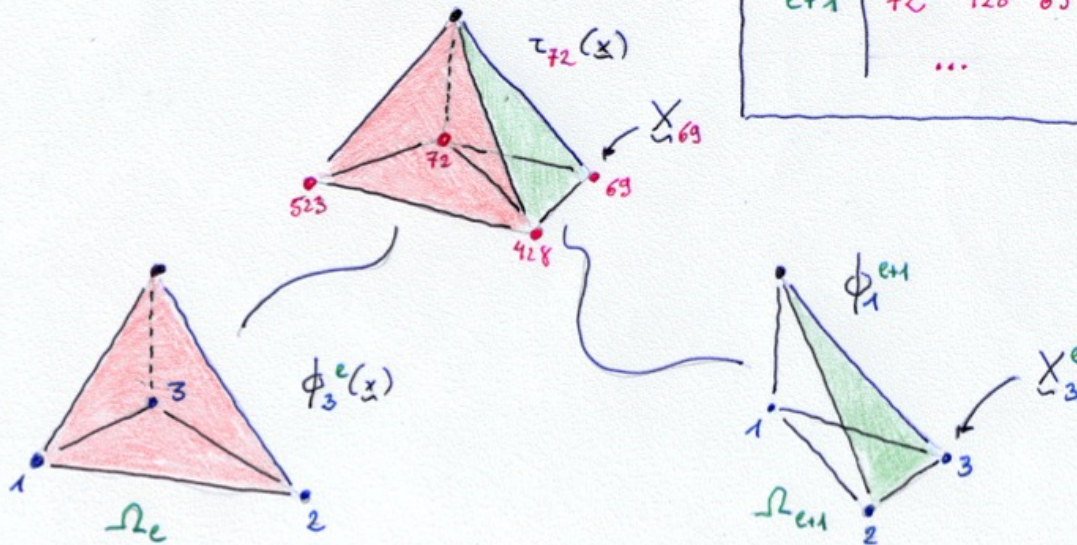 e+1 72 428 69
...
τ72(x)
X69
72
69
523
428
ϕ1^e+1
ϕ3^e(x)
X3^e
3
1
2
Ωe
1
3
2
Ωe+1